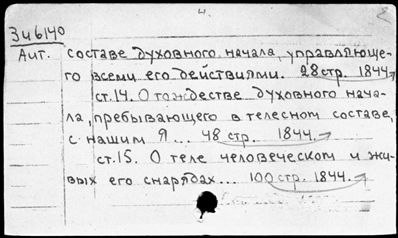 4.
Зи6140
Аит. составе духовного начала, управляюще-
го всеми его действиями. 28 стр. 1844
ст.14. О тождестве духовного нача-
ла, пребывающего в телесном составе,
с нашим Я... 48 стр. 1844.
ст.15. О теле человеческом и жи-
вых его снарядах... 100 стр. 1844.